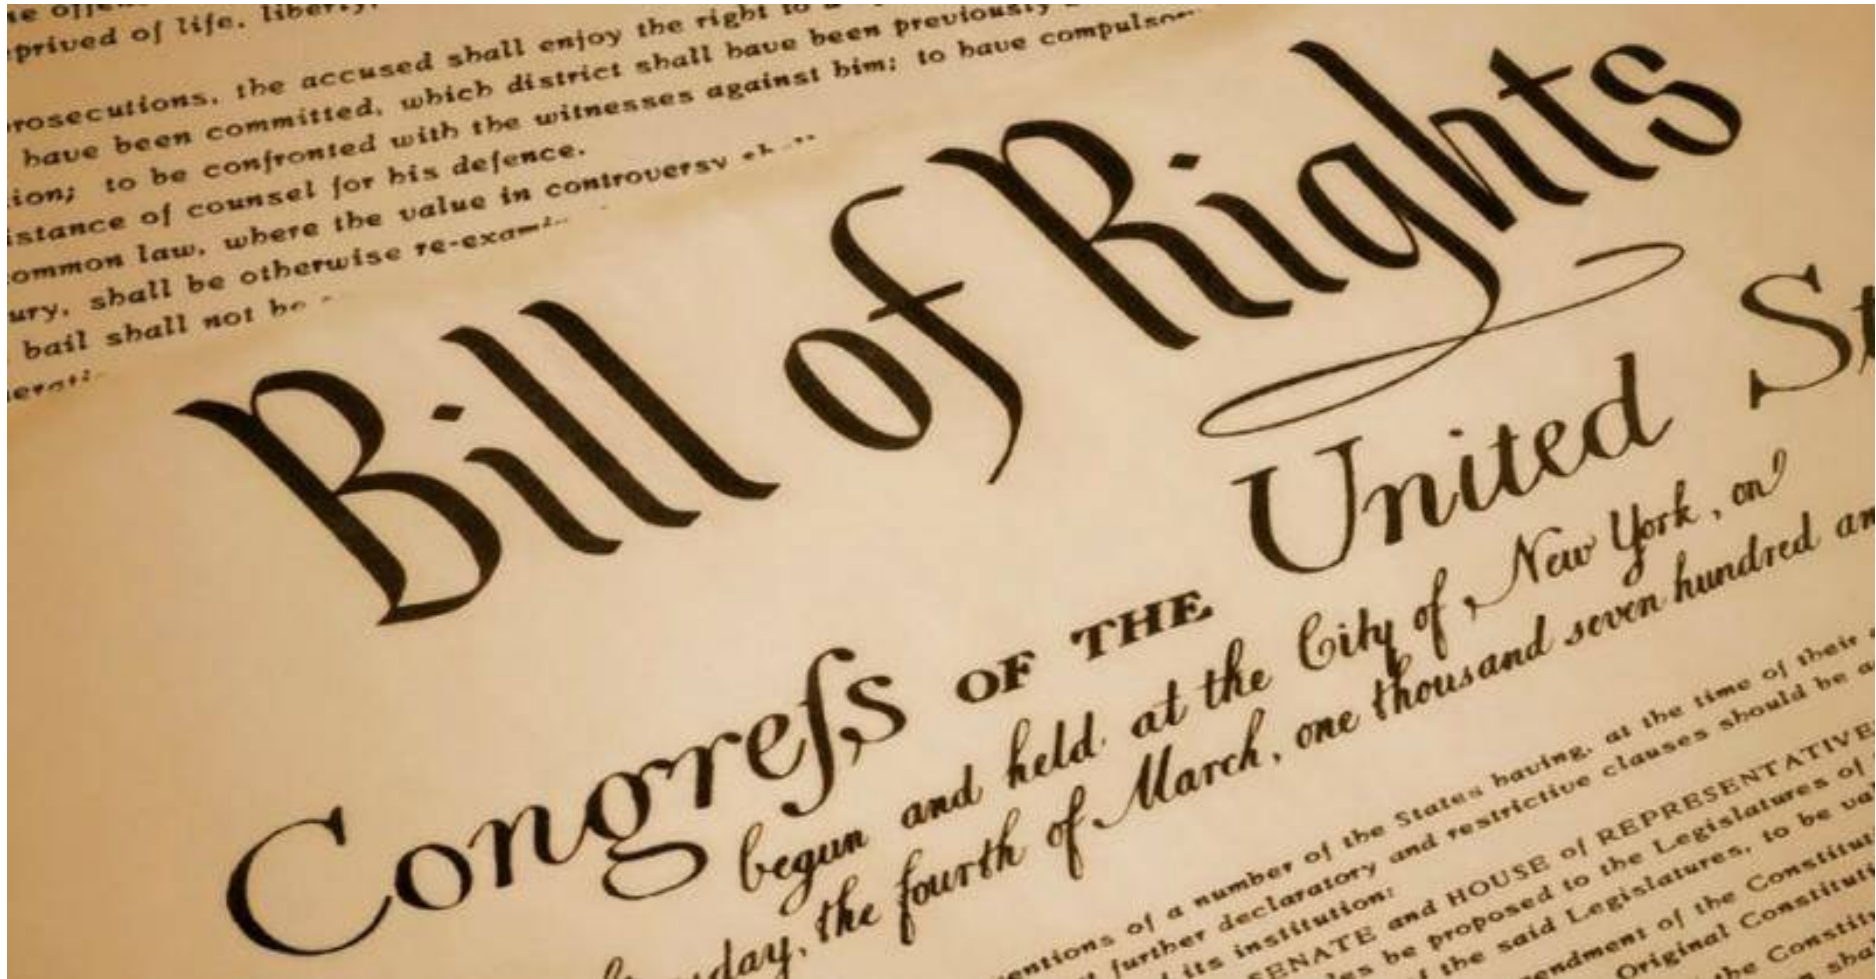 life, liberty,
of life, liberty,
the accused shall enjoy the right to
have been committed, which district shall have been previously
to be confronted with the witnesses against him; to have
of counsel for his defence.
law, where the value in controversy
shall be otherwise
bail shall not be
Bill of Rights
Congreſs OF THE United
begun and held at the City of New York, on
the fourth of March, one thousand seven hundred
of a number of the States having, at the time of their
further declaratory and restrictive clauses should be
its institution:
SENATE and HOUSE of
be proposed to the Legislatures of
the said Legislatures, to be
of the
Original
the